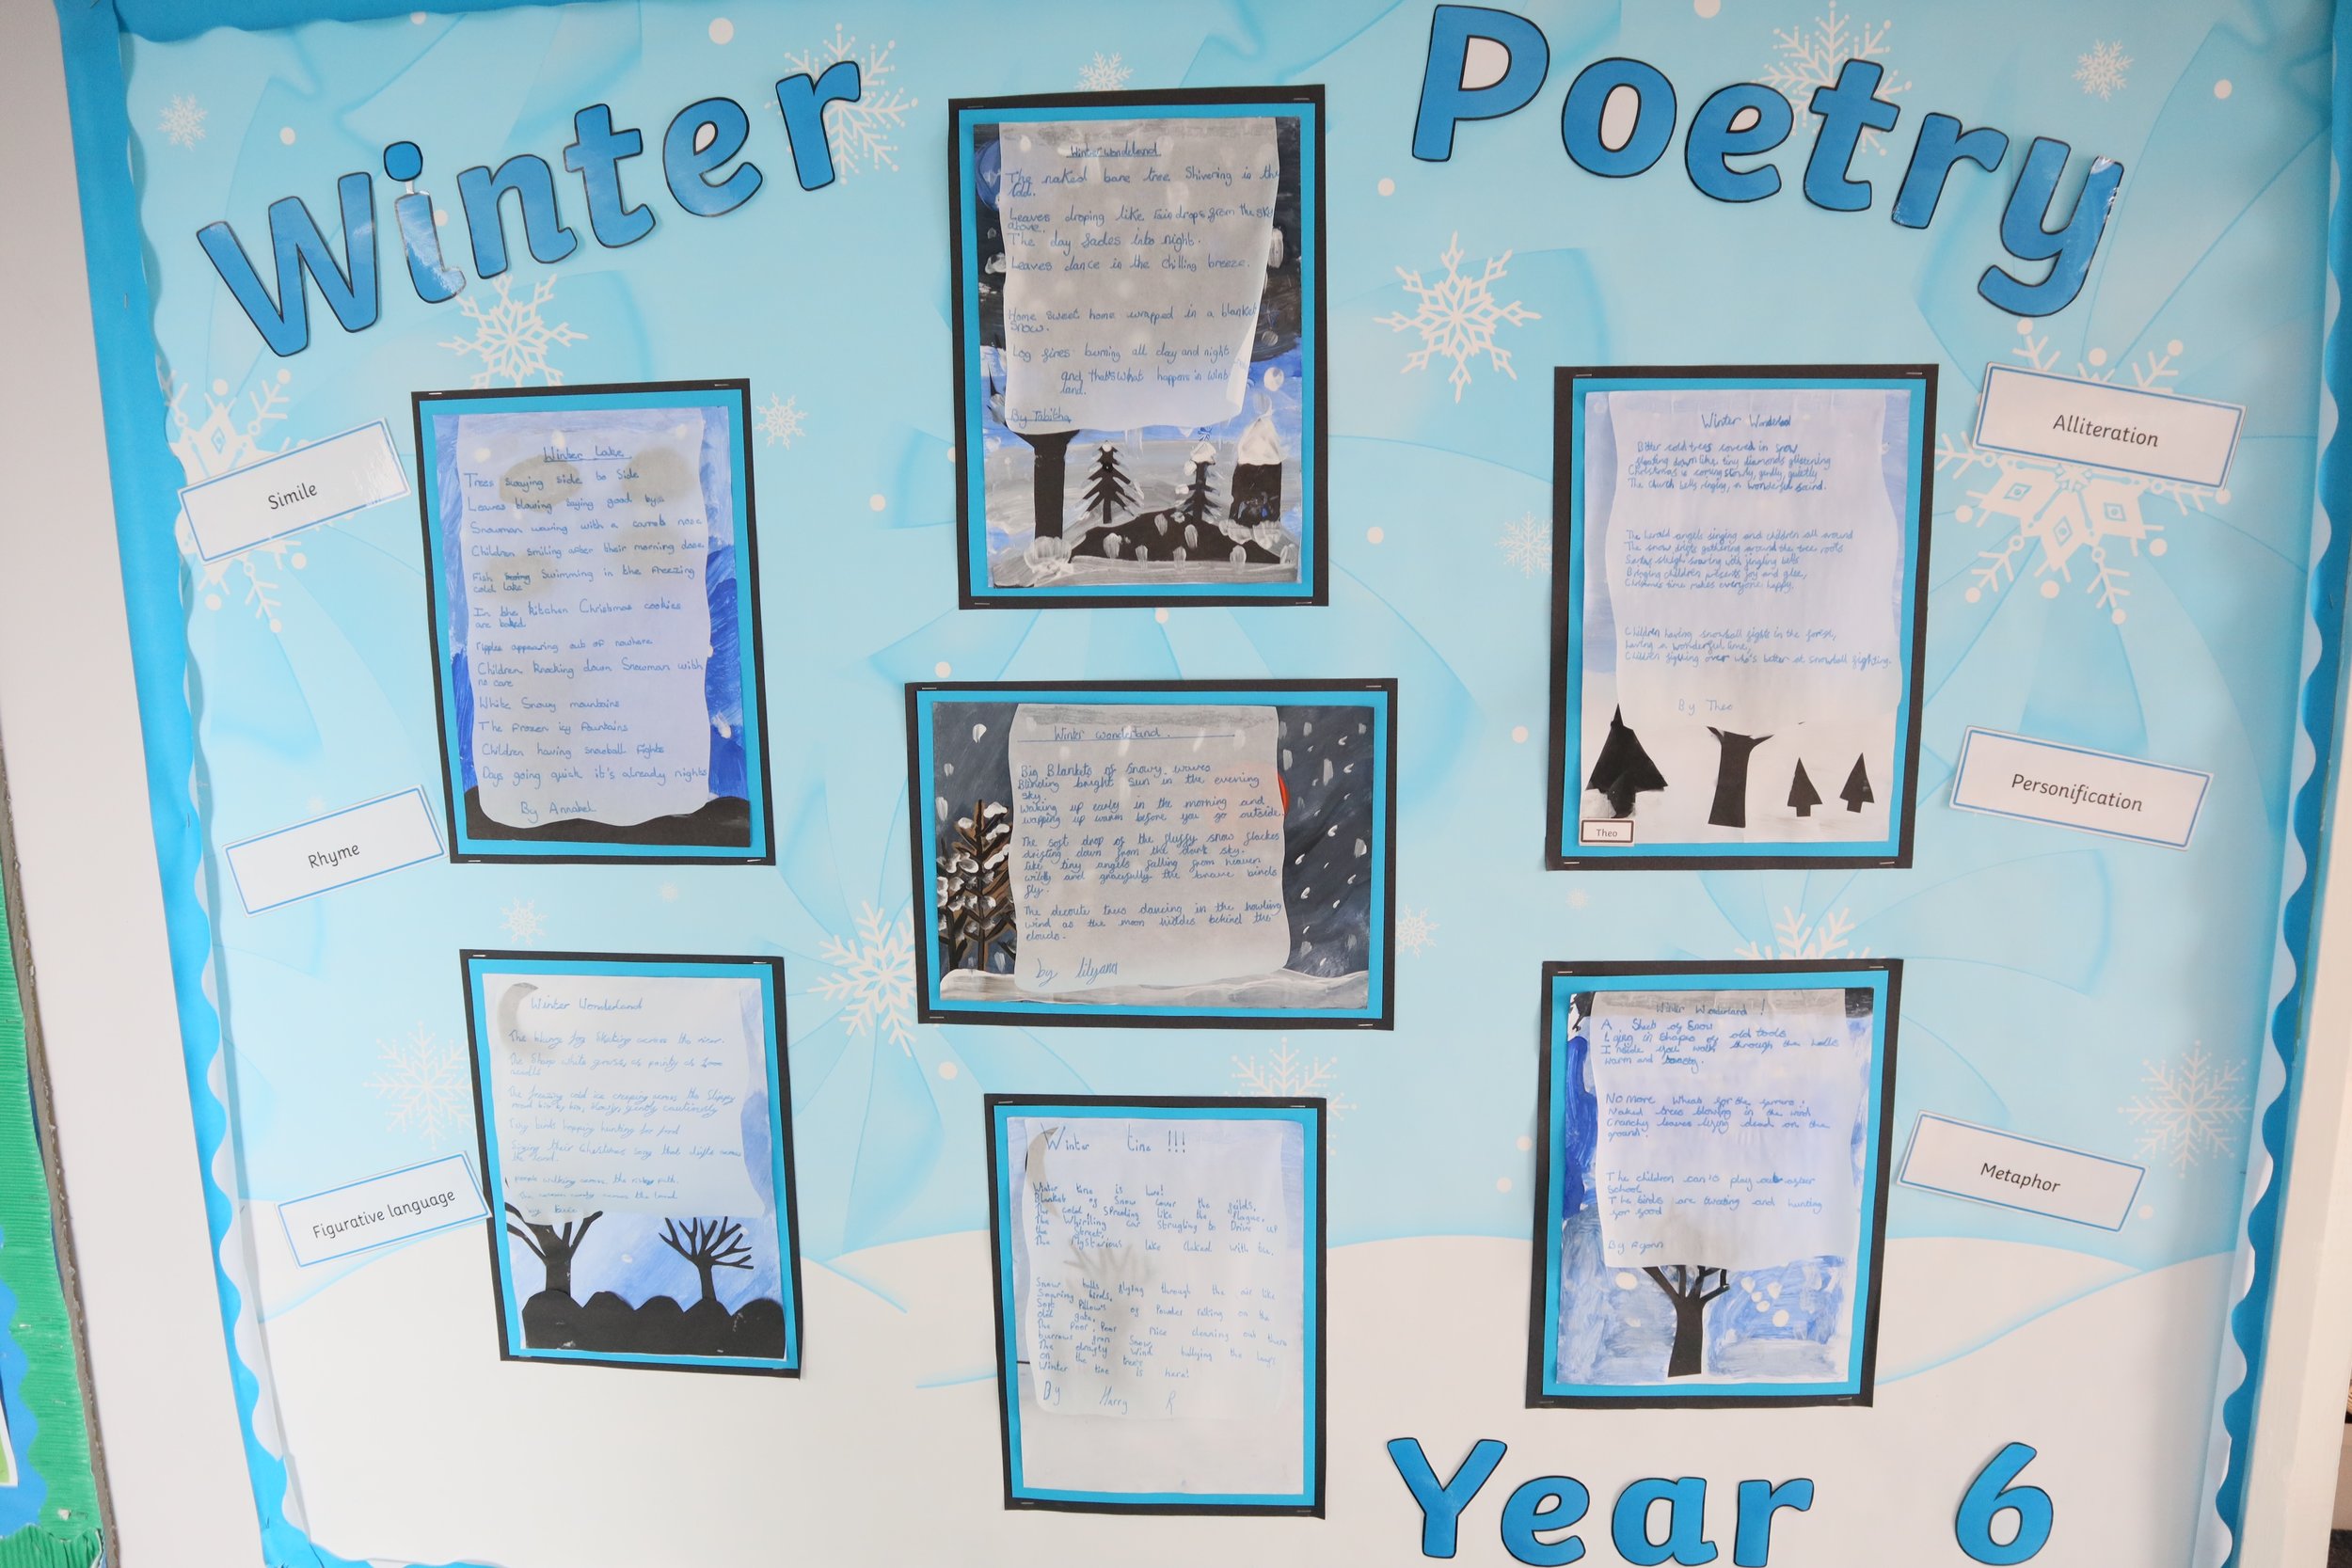 Winter Poetry
Simile
Rhyme
Figurative language
Winter Lake
Trees swaying side to side
Leaves blowing saying good bye
Snowman waving with a carrot nose
Children smiling after their morning doze
Fish swimming in the freezing
cold lake
In the kitchen Christmas cookies
are baked.
ripples appearing out of nowhere
Children knocking down Snowman with
no care
White Snowy mountains
The frozen icy fountains
Children having snowball fights
Days going quick it's already nights
By Annabel
Winter Wonderland
The blurry fog floating across the river.
The sharp white grass, as pointy as
needle
The freezing cold ice creeping across the slippery
road bit by bit, slowly, gently cautiously
Tiny birds hopping hunting for food
Singing their Christmas song that drifts across
the land.
people walking across the path.
The across the land
by
Winter wondeland
The naked bare tree Shivering is the
Cold.
Leaves droping like rain drops from the sky
above.
The day fades into night.
Leaves dance in the chilling breeze.
Home sweet home wrapped in a blanket
snow.
Log fires burning all day and night
and that's what happens in wint
land.
By Tabitha
Winter wonderland.
Big Blankets of snowy waves
Blinding bright sun in the evening
sky.
Waking up early in the morning and
wapping up warm before you go outside.
The soft drop of the fluffy snow flackes
drifting down from the dark sky.
like tiny angels falling from heaven
wildly and gracefully the brave birds
fly.
The decorate trees dancing in the howling
wind as the moon hiddes behind the
clouds.
by lilyann
Winter time !!!
Winter time is here!
Blanket of snow cover the feilds,
The cold spreading like the plague,
The Whirling car Strugling to Drive up
the street,
The Mysterious lake naked with ice.
Snow balls flying through the air like
Soaring birds,
Soft Pillows of Powder falling on the
old gate,
The Poor, Poor Mice cleaning out there
burrows from snow,
The drafty wind bullying the leafs
on the trees
Winter time is here!
By Harry R
Winter Wonderland
Bitter cold trees covered in snow
floating down like tiny diamonds glistening
Christmas is coming slowly, gently, quietly
The church bells ringing, a wonderful sound.
The herald angels singing and children all around
The snow drifts gathering around the tree roots
Santas sleigh soaring with jingling bells
Bringing children presents joy and glee,
Christmas time makes everyone happy.
Children having snowball fights in the forest,
having a wonderful time,
Children fighting over who's better at snowball fighting.
By Theo
Theo
Winter Wonderland !
A Shed of Snow
Lying in shapes of old tools
Inside you walk through the halls
warm and
No more wheat for the farmers
Naked trees blowing in the wind
Crunchy leaves lying dead on the
ground.
The children can't play out after
School
The birds are tweeting and hunting
for food
By Ryann
Alliteration
Personification
Metaphor
Year 6